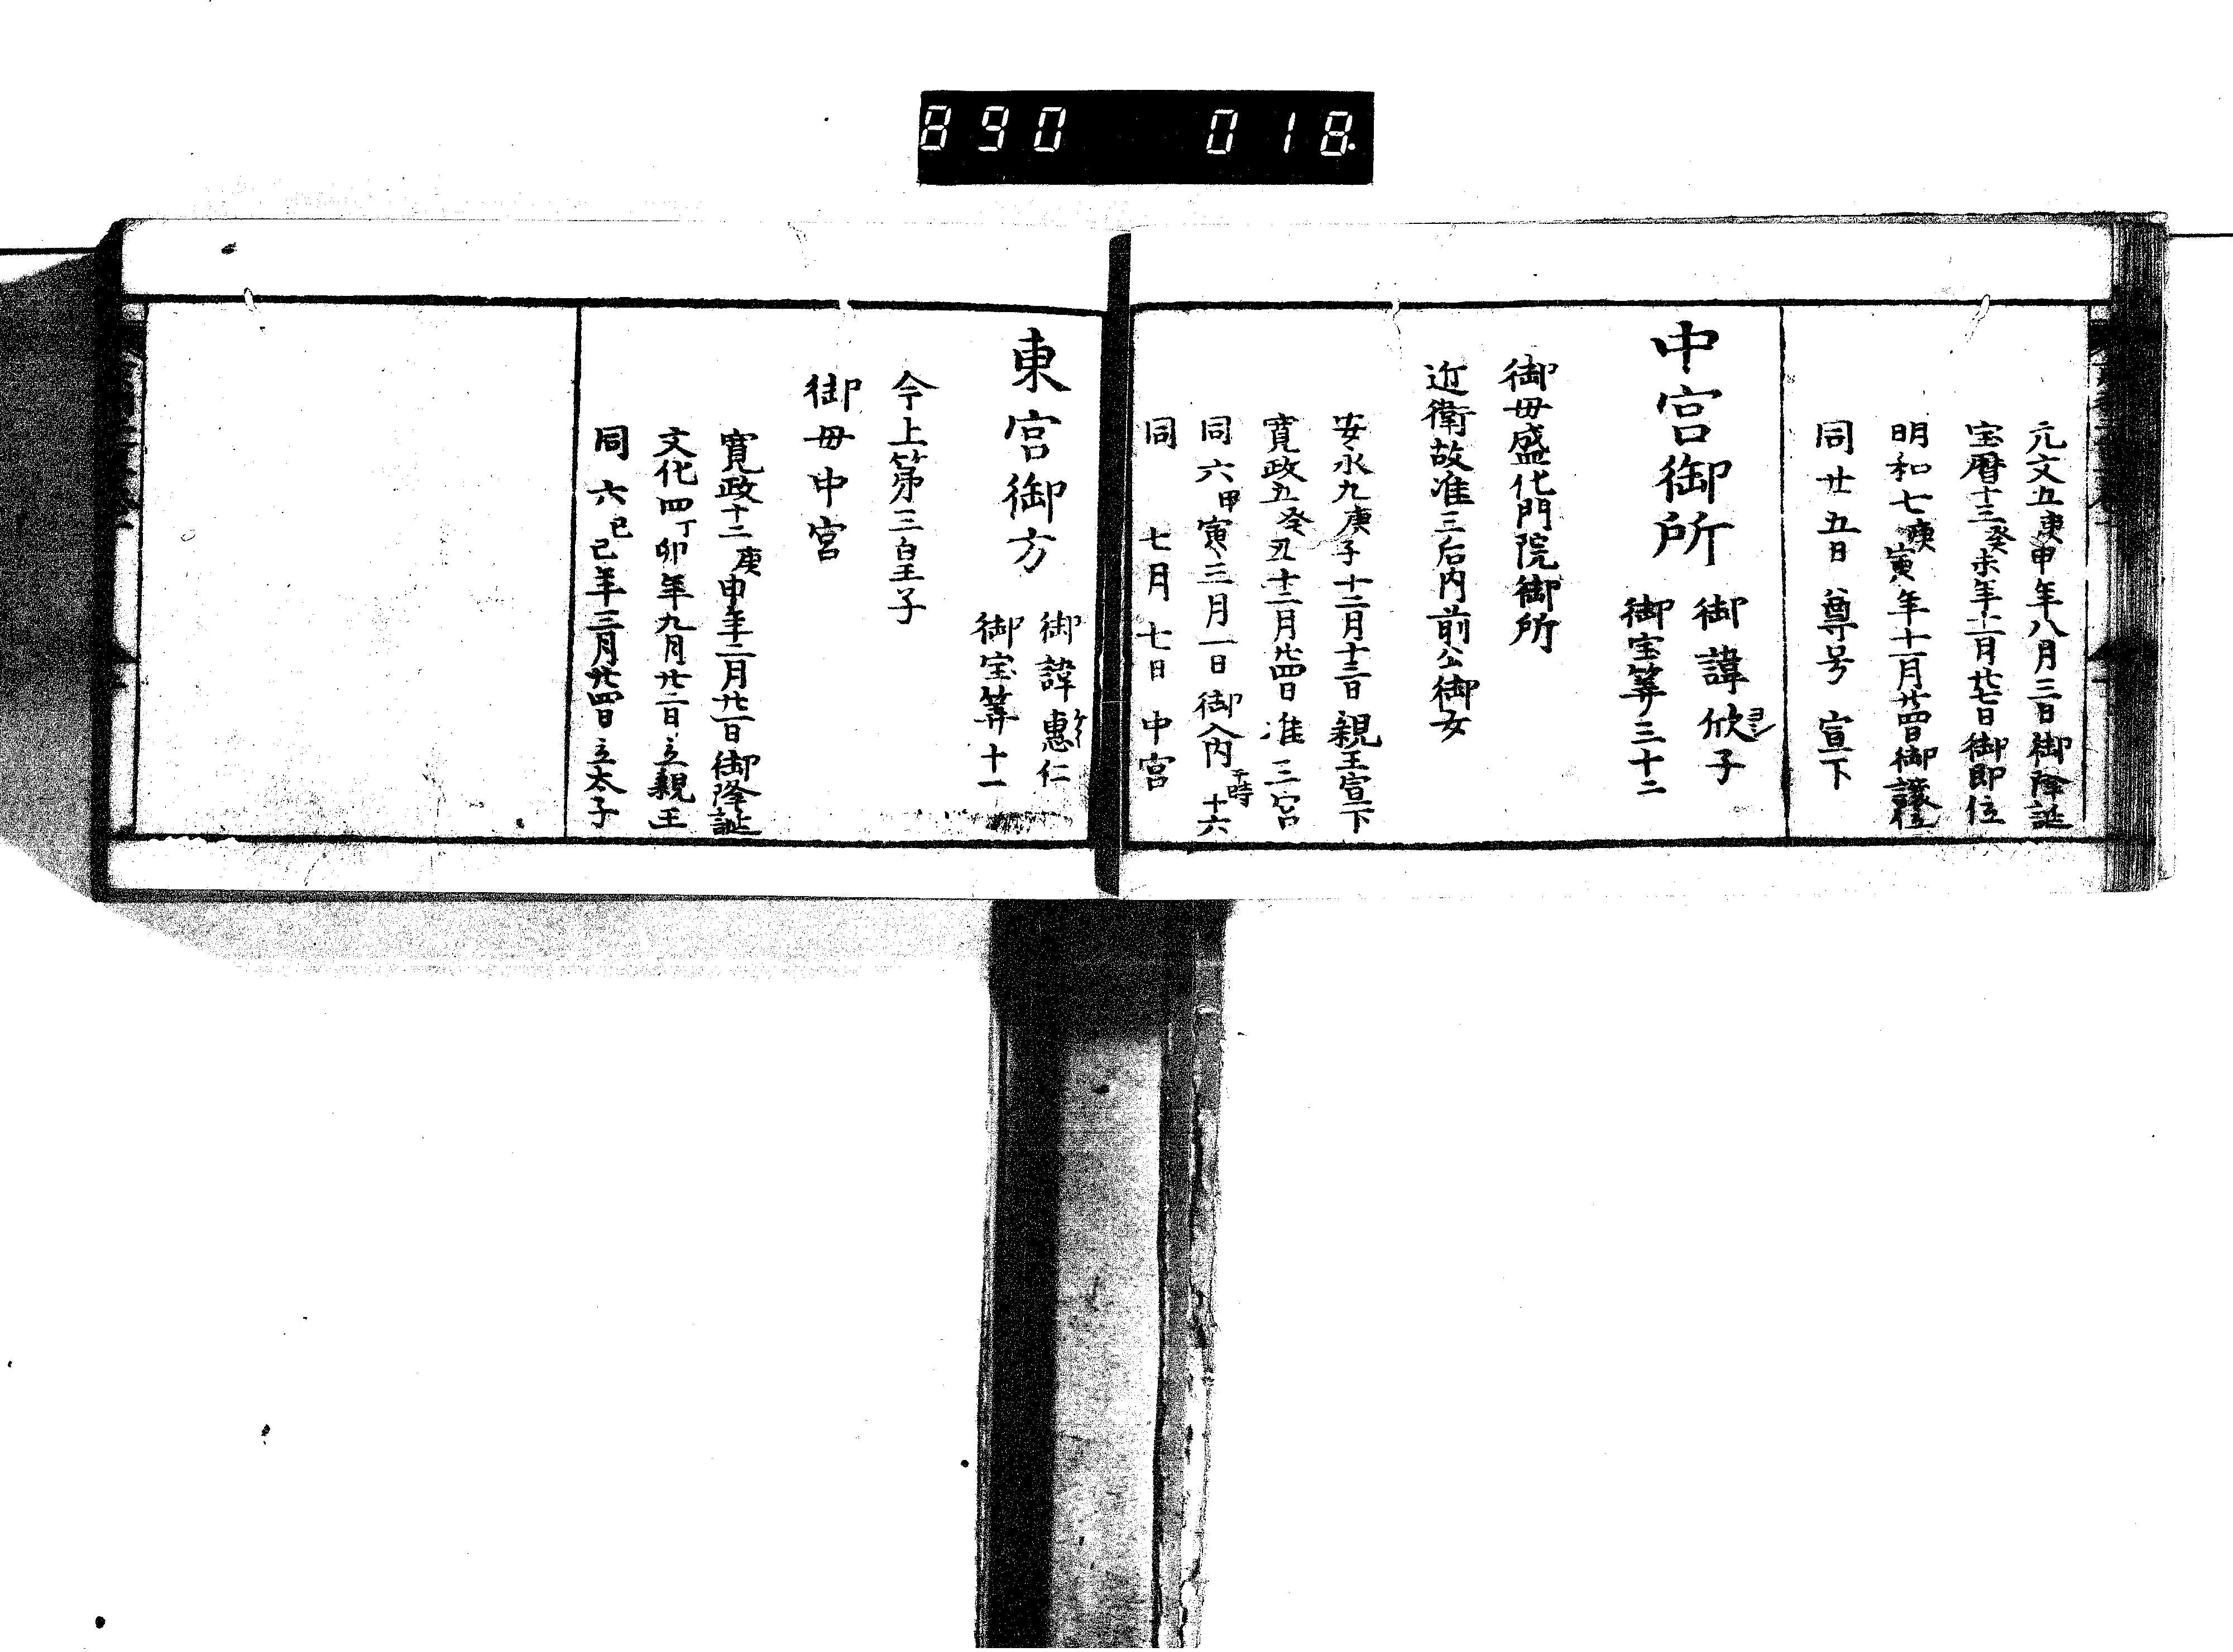 890 018
元文五庚申年八月三日御降誕
宝暦十三癸未年十一月廿七日御即位
明和七庚寅年十一月廿四日御譲位
同廿五日尊号宣下
中宮御所
御諱欣子
ヨシ
御宝筭三十二
御母盛化門院御所
近衛故准三后内前公御女
安永九庚子十二月十三日親王宣下
寛政五癸丑十二月廿四日准三宮
同六甲寅三月一日御入内于時十六
同七月七日中宮
東宮御方
御諱惠仁
アヤ
御宝筭十一
今上第三皇子
御母中宮
寛政十二庚申年二月廿一日御降誕
文化四丁卯年九月廿二日立親王
同六己巳年三月廿四日立太子